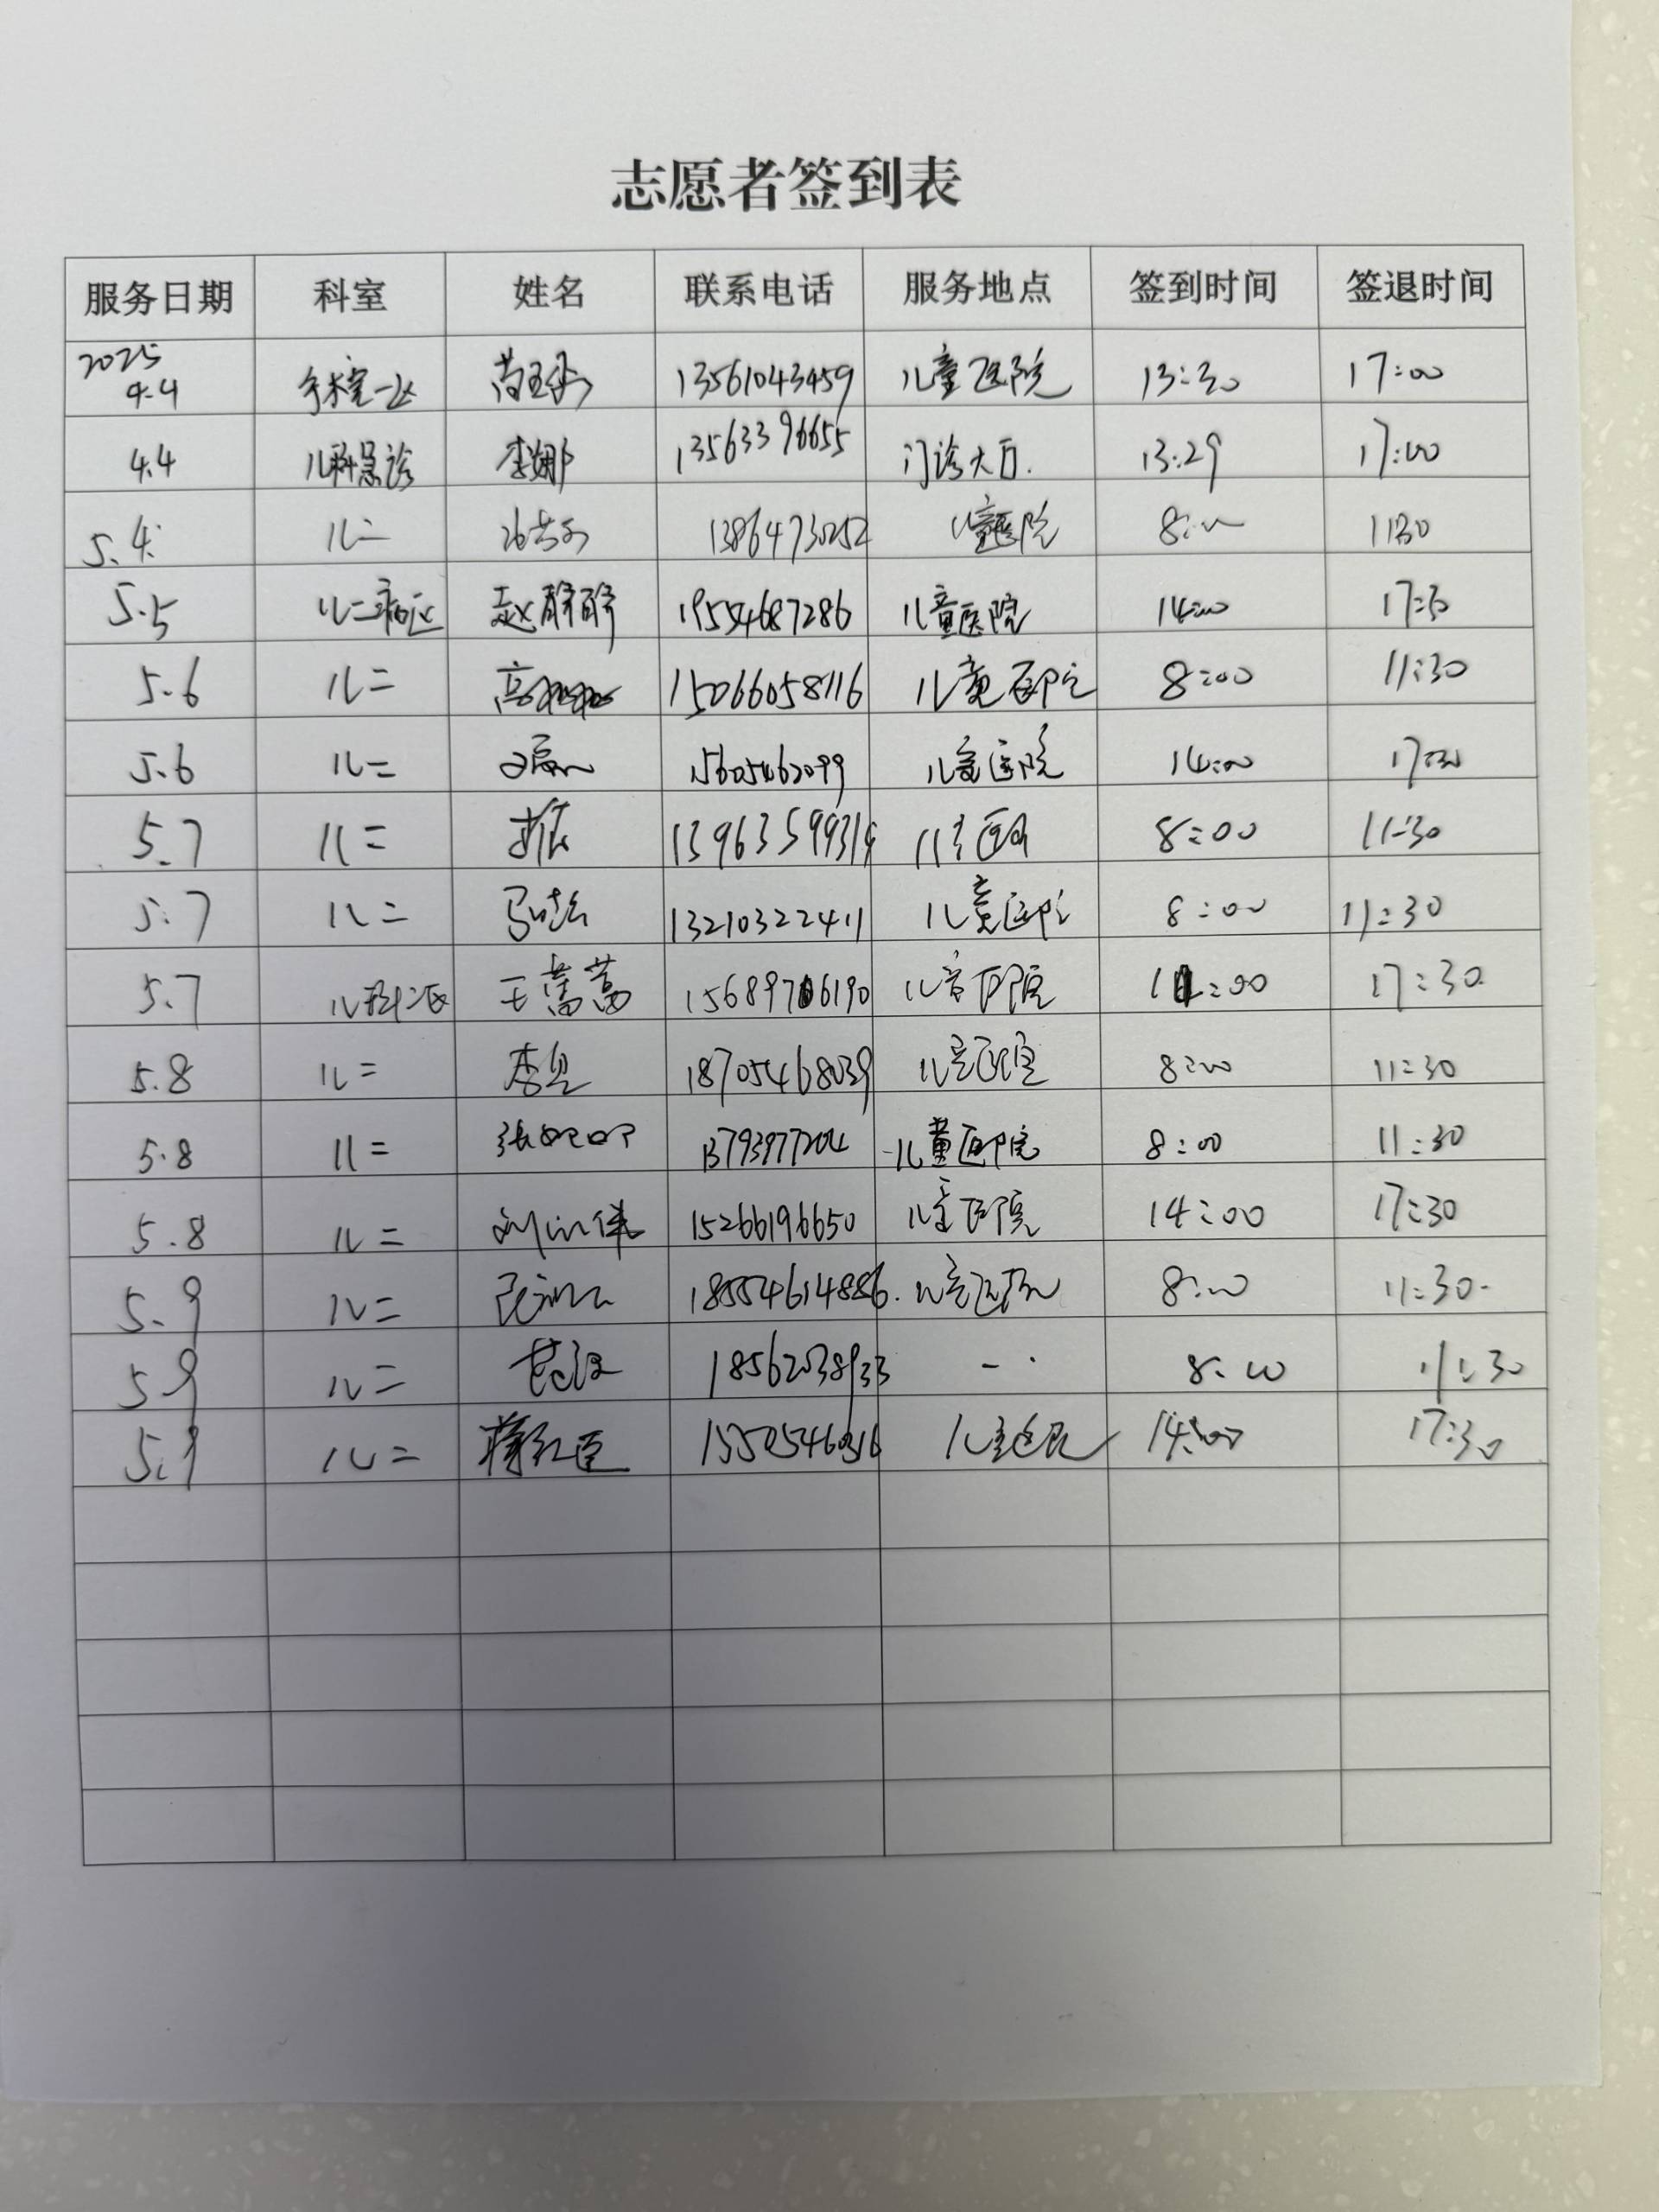 志愿者签到表
服务日期 科室 姓名 联系电话 服务地点 签到时间 签退时间
2025
4.4 手术室一区 13561043459 儿童医院 13:30 17:00
4.4 儿科急诊 李娜 13563396655 门诊大厅. 13:29 17:00
5.4 儿二 13864730252 儿童医院 8:00 11:30
5.5 儿二病区 赵静静 19554687286 儿童医院 14:00 17:30
5.6 儿二 15066058116 儿童医院 8:00 11:30
5.6 儿二 15605462099 儿童医院 14:00 17:30
5.7 儿二 13963599314 儿童医院 8:00 11:30
5.7 儿二 13210322411 儿童医院 8:00 11:30
5.7 儿科二区 王蒿蒿 15689706190 儿童医院 14:00 17:30
5.8 儿二 18705468039 儿童医院 8:00 11:30
5.8 儿二 儿童医院 8:00 11:30
5.8 儿二 15266196650 儿童医院 14:00 17:30
5.9 儿二 18554614886. 儿童医院 8:00 11:30
5.9 儿二 18562038933 8:00 11:30
5.9 儿二 蒋红臣 儿童医院 14:00 17:30